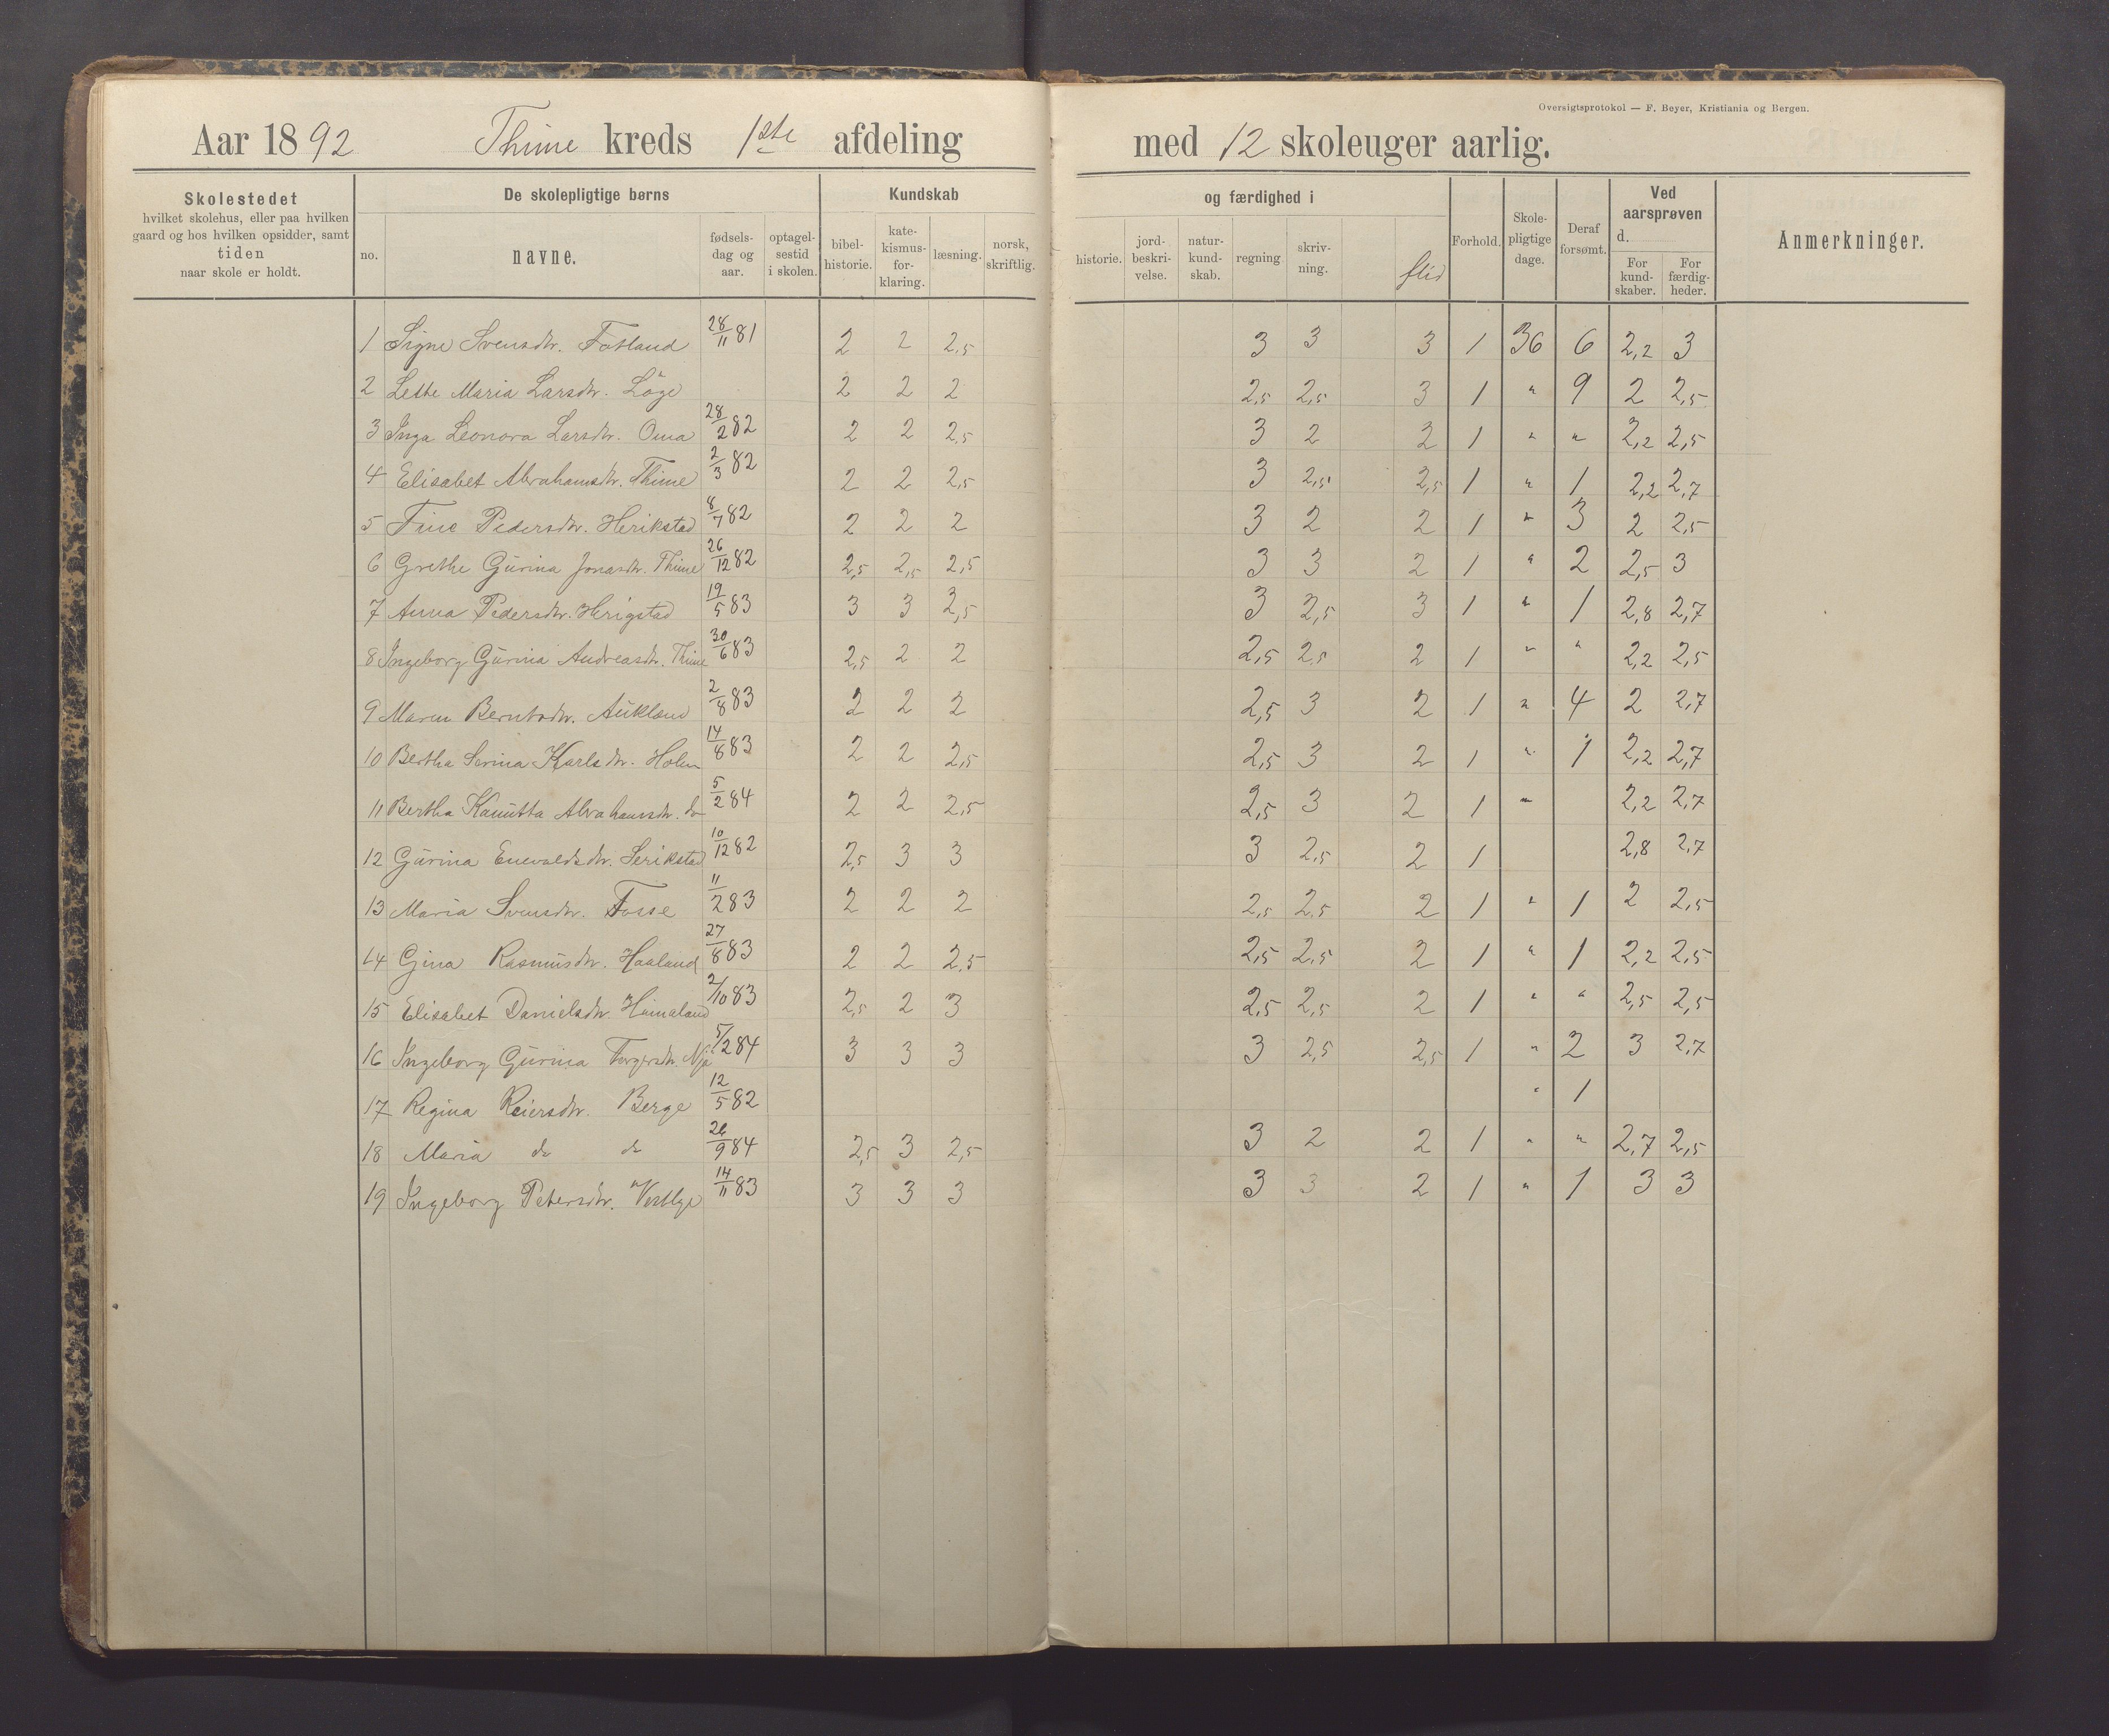 Oversigtsprotokol — F. Beyer, Kristiania og Bergen.
Aar 1892 Thime kreds 1ste afdeling med 12 skoleuger aarlig.
Skolestedet hvilket skolehus, eller paa hvilken gaard og hos hvilken opsidder, samt tiden naar skole er holdt.
De skolepligtige børns
no. navne. fødsels-dag og aar. optagel-sestid i skolen.
Kundskab og færdighed i
bibel-historie. kate-kismus-for-klaring. læsning. norsk, skriftlig. historie. jord-beskri-velse. natur-kund-skab. regning skriv-ning. flid
Forhold. Skole-pligtige dage. Deraf forsømt. Ved aarsprøven d. For kund-skaber. For færdig-heder. Anmerkninger.
1 Signe Svensdtr. Fotland 28/11 81 2 2 2,5 3 3 3 1 36 6 2,2 3
2 Maria Larsdtr. Löge 2 2 2 2,5 2,5 3 1 " 9 2 2,5
3 Inga Leonora Larsdtr. Oma 28/2 82 2 2 2,5 3 2 2 1 " " 2,2 2,5
4 Elisabet Abrahamsdtr. Thime 2/3 82 2 2 2,5 3 2,5 2,5 1 " 1 2,2 2,7
5 Tine Pedersdtr. Herikstad 8/7 82 2 2 2 3 2 2 1 " 3 2 2,5
6 Grethe Gurina Jonasdtr. Thime 26/12 82 2,5 2,5 2,5 3 3 2 1 " 2 2,5 3
7 Anna Pedersdtr. Herigstad 19/5 83 3 3 2,5 3 2,5 3 1 " 1 2,8 2,7
8 Ingeborg Gurina Andreasdtr. Thime 30/6 83 2,5 2 2 2,5 2,5 2 1 " " 2,2 2,5
9 Maren Berntsdtr. Aukland 2/8 83 2 2 2 2,5 3 2 1 " 4 2 2,7
10 Bertha Serina Karlsdtr. Holen 14/8 83 2 2 2,5 2,5 3 2 1 " 1 2,2 2,7
11 Bertha Kanutta Abrahamsdtr. do 5/2 84 2 2 2,5 2,5 3 2 1 " 2,2 2,7
12 Gurina Enevaldsdtr. Serikstad 10/12 82 2,5 3 3 3 2,5 2 1 2,8 2,7
13 Maria Svensdtr. Fosse 11/2 83 2 2 2 2,5 2,5 2 1 " 1 2 2,5
14 Gina Rasmusdtr. Haaland 27/8 83 2 2 2,5 2,5 2,5 2 1 " 1 2,2 2,5
15 Elisabet Danielsdtr. Humaland 2/10 83 2,5 2 3 2,5 2,5 2 1 " " 2,5 2,5
16 Ingeborg Gurina Torgersdtr. Njå 5/12 84 3 3 3 3 2,5 2,5 1 " 2 3 2,7
17 Regina Reiersdtr. Berge 12/5 82 " 1
18 Maria do do 26/9 84 2,5 3 2,5 3 2 2 1 " " 2,7 2,5
19 Ingeborg Petersdtr. Vestlye 14/11 83 3 3 3 3 3 2 1 " 1 3 3